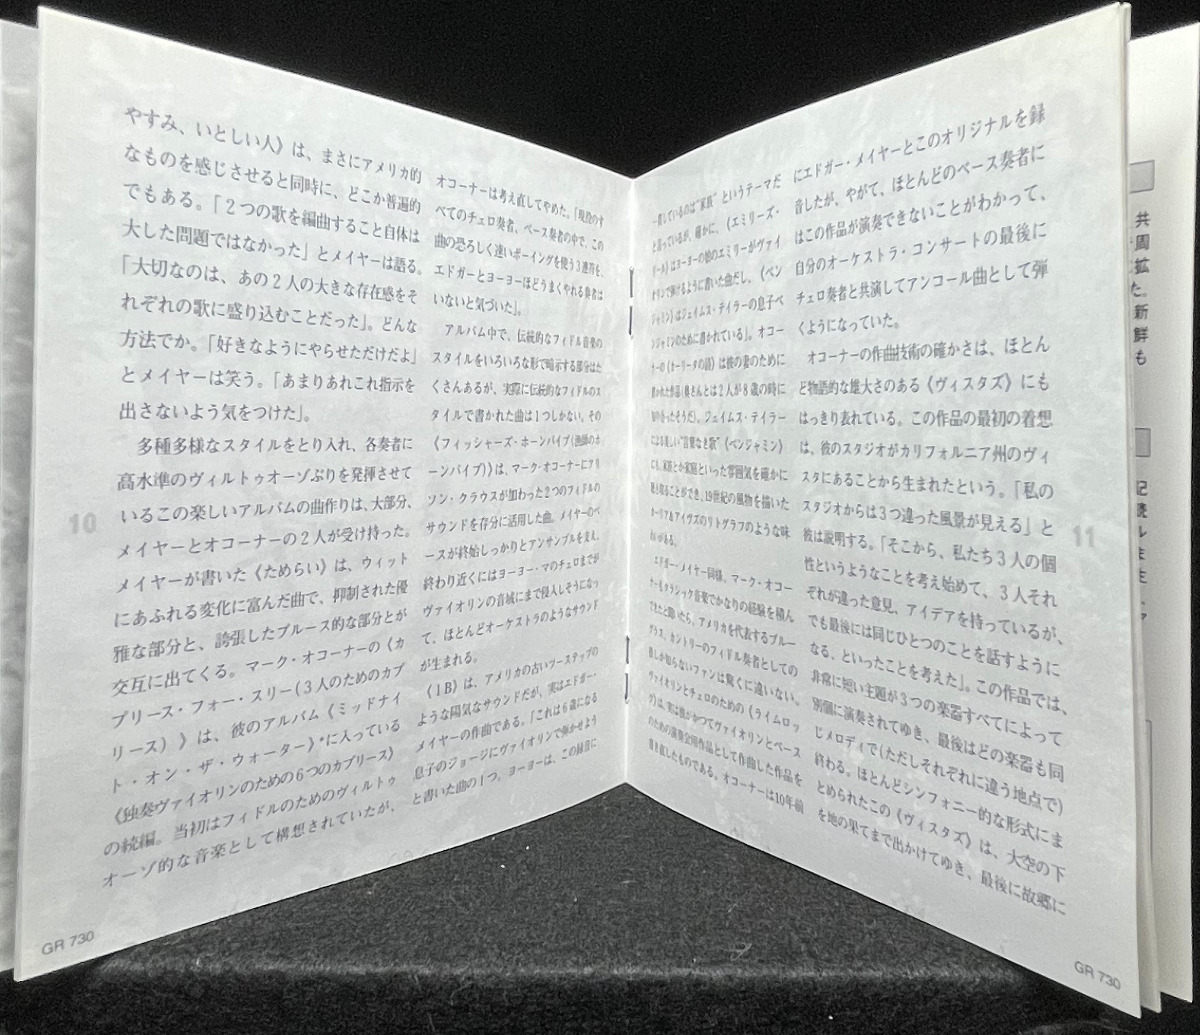 やすみ、いとしい人》は、まさにアメリカ的
なものを感じさせると同時に、どこか普遍的
でもある。「2つの歌を編曲すること自体は
大した問題ではなかった」とメイヤーは語る。
「大切なのは、あの2人の大きな存在感をそ
れぞれの歌に盛り込むことだった」。どんな
方法でか。「好きなようにやらせただけだよ」
とメイヤーは笑う。「あまりあれこれ指示を
出さないよう気をつけた」。
多種多様なスタイルをとり入れ、各奏者に
高水準のヴィルトゥオーゾぶりを発揮させて
いるこの楽しいアルバムの曲作りは、大部分、
メイヤーとオコーナーの2人が受け持った。
メイヤーが書いた《ためらい》は、ウィット
にあふれる変化に富んだ曲で、抑制された優
雅な部分と、誇張したブルース的な部分とが
交互に出てくる。マーク・オコーナーの《カ
プリース・フォー・スリー(3人のためのカプ
リース)》は、彼のアルバム《ミッドナイ
ト・オン・ザ・ウォーター》*に入っている
《独奏ヴァイオリンのための6つのカプリース》
の続編。当初はフィドルのためのヴィルトゥ
オーゾ的な音楽として構想されていたが、
オコーナーは考え直してやめた。「現役のす
べてのチェロ奏者、ベース奏者の中で、この
曲の恐ろしく速いボーイングを使う3連符を、
エドガーとヨーヨーほどうまくやれる奏者は
いないと気づいた」。
アルバム中で、伝統的なフィドル音楽の
スタイルをいろいろな形で暗示する部分はた
くさんあるが、実際に伝統的なフィドルのス
タイルで書かれた曲は1つしかない。その
《フィッシャーズ・ホーンパイプ(漁師のホ
ーンパイプ)》は、マーク・オコーナーにアリ
ソン・クラウスが加わった2つのフィドルの
サウンドを存分に活用した曲。メイヤーのベ
ースが終始しっかりとアンサンブルを支え、
終わり近くにはヨーヨー・マのチェロまでが
ヴァイオリンの音域にまで侵入しそうになっ
て、ほとんどオーケストラのようなサウンド
が生まれる。
《1B》は、アメリカの古いフーステップの
ような陽気なサウンドだが、実はエドガー・
メイヤーの作曲である。「これは6歳になる
息子のジョージにヴァイオリンで弾かせよう
と書いた曲の1つ。ヨーヨーは、この録音に
10
GR 730
一貫しているのは"家族"というテーマだ
と言っているが、確かに、《エミリーズ・
リール》はヨーヨーの娘のエミリーがヴァイ
オリンで弾けるように書いた曲だし、《ベン
ジャミン》はジェイムス・テイラーの息子ベ
ンジャミンのために書かれている」。オコー
ナーの《オーリータの詩》は彼の妻のために
書かれた作品(奥さんとは2人が8歳の時に
知り合ったそうだ)。ジェイムス・テイラー
による美しい"言葉なき歌"《ベンジャミン》
にも、家族とか家庭といった雰囲気を確かに
聴き取ることができ、19世紀の風物を描いた
カーリア&アイヴズのリトグラフのような味
わいがある。
エドガー・メイヤー同様、マーク・オコー
ナーもクラシック音楽でかなりの経験を積ん
できたと聞いたら、アメリカを代表するブルー
グラス、カントリーのフィドル奏者としての
彼しか知らないファンは驚くに違いない。
ヴァイオリンとチェロのための《ライムロッ
ク》は、実は彼がかつてヴァイオリンとベース
のための演奏会用作品として作曲した作品を
書き直したものである。オコーナーは10年前
にエドガー・メイヤーとこのオリジナルを録
音したが、やがて、ほとんどのベース奏者に
はこの作品が演奏できないことがわかって、
自分のオーケストラ・コンサートの最後に
チェロ奏者と共演してアンコール曲として弾
くようになっていた。
オコーナーの作曲技術の確かさは、ほとん
ど物語的な雄大さのある《ヴィスタズ》にも
はっきり表れている。この作品の最初の着想
は、彼のスタジオがカリフォルニア州のヴィ
スタにあることから生まれたという。「私の
スタジオからは3つ違った風景が見える」と
彼は説明する。「そこから、私たち3人の個
性というようなことを考え始めて、3人それ
ぞれが違った意見、アイデアを持っているが、
でも最後には同じひとつのことを話すように
なる、といったことを考えた」。この作品では、
非常に短い主題が3つの楽器すべてによって
別個に演奏されてゆき、最後はどの楽器も同
じメロディで(ただしそれぞれに違う地点で)
終わる。ほとんどシンフォニー的な形式にま
とめられたこの《ヴィスタズ》は、大空の下
を地の果てまで出かけてゆき、最後に故郷に
11
GR 730
共
周
拡
た。
新
鮮
も
記
続
ル